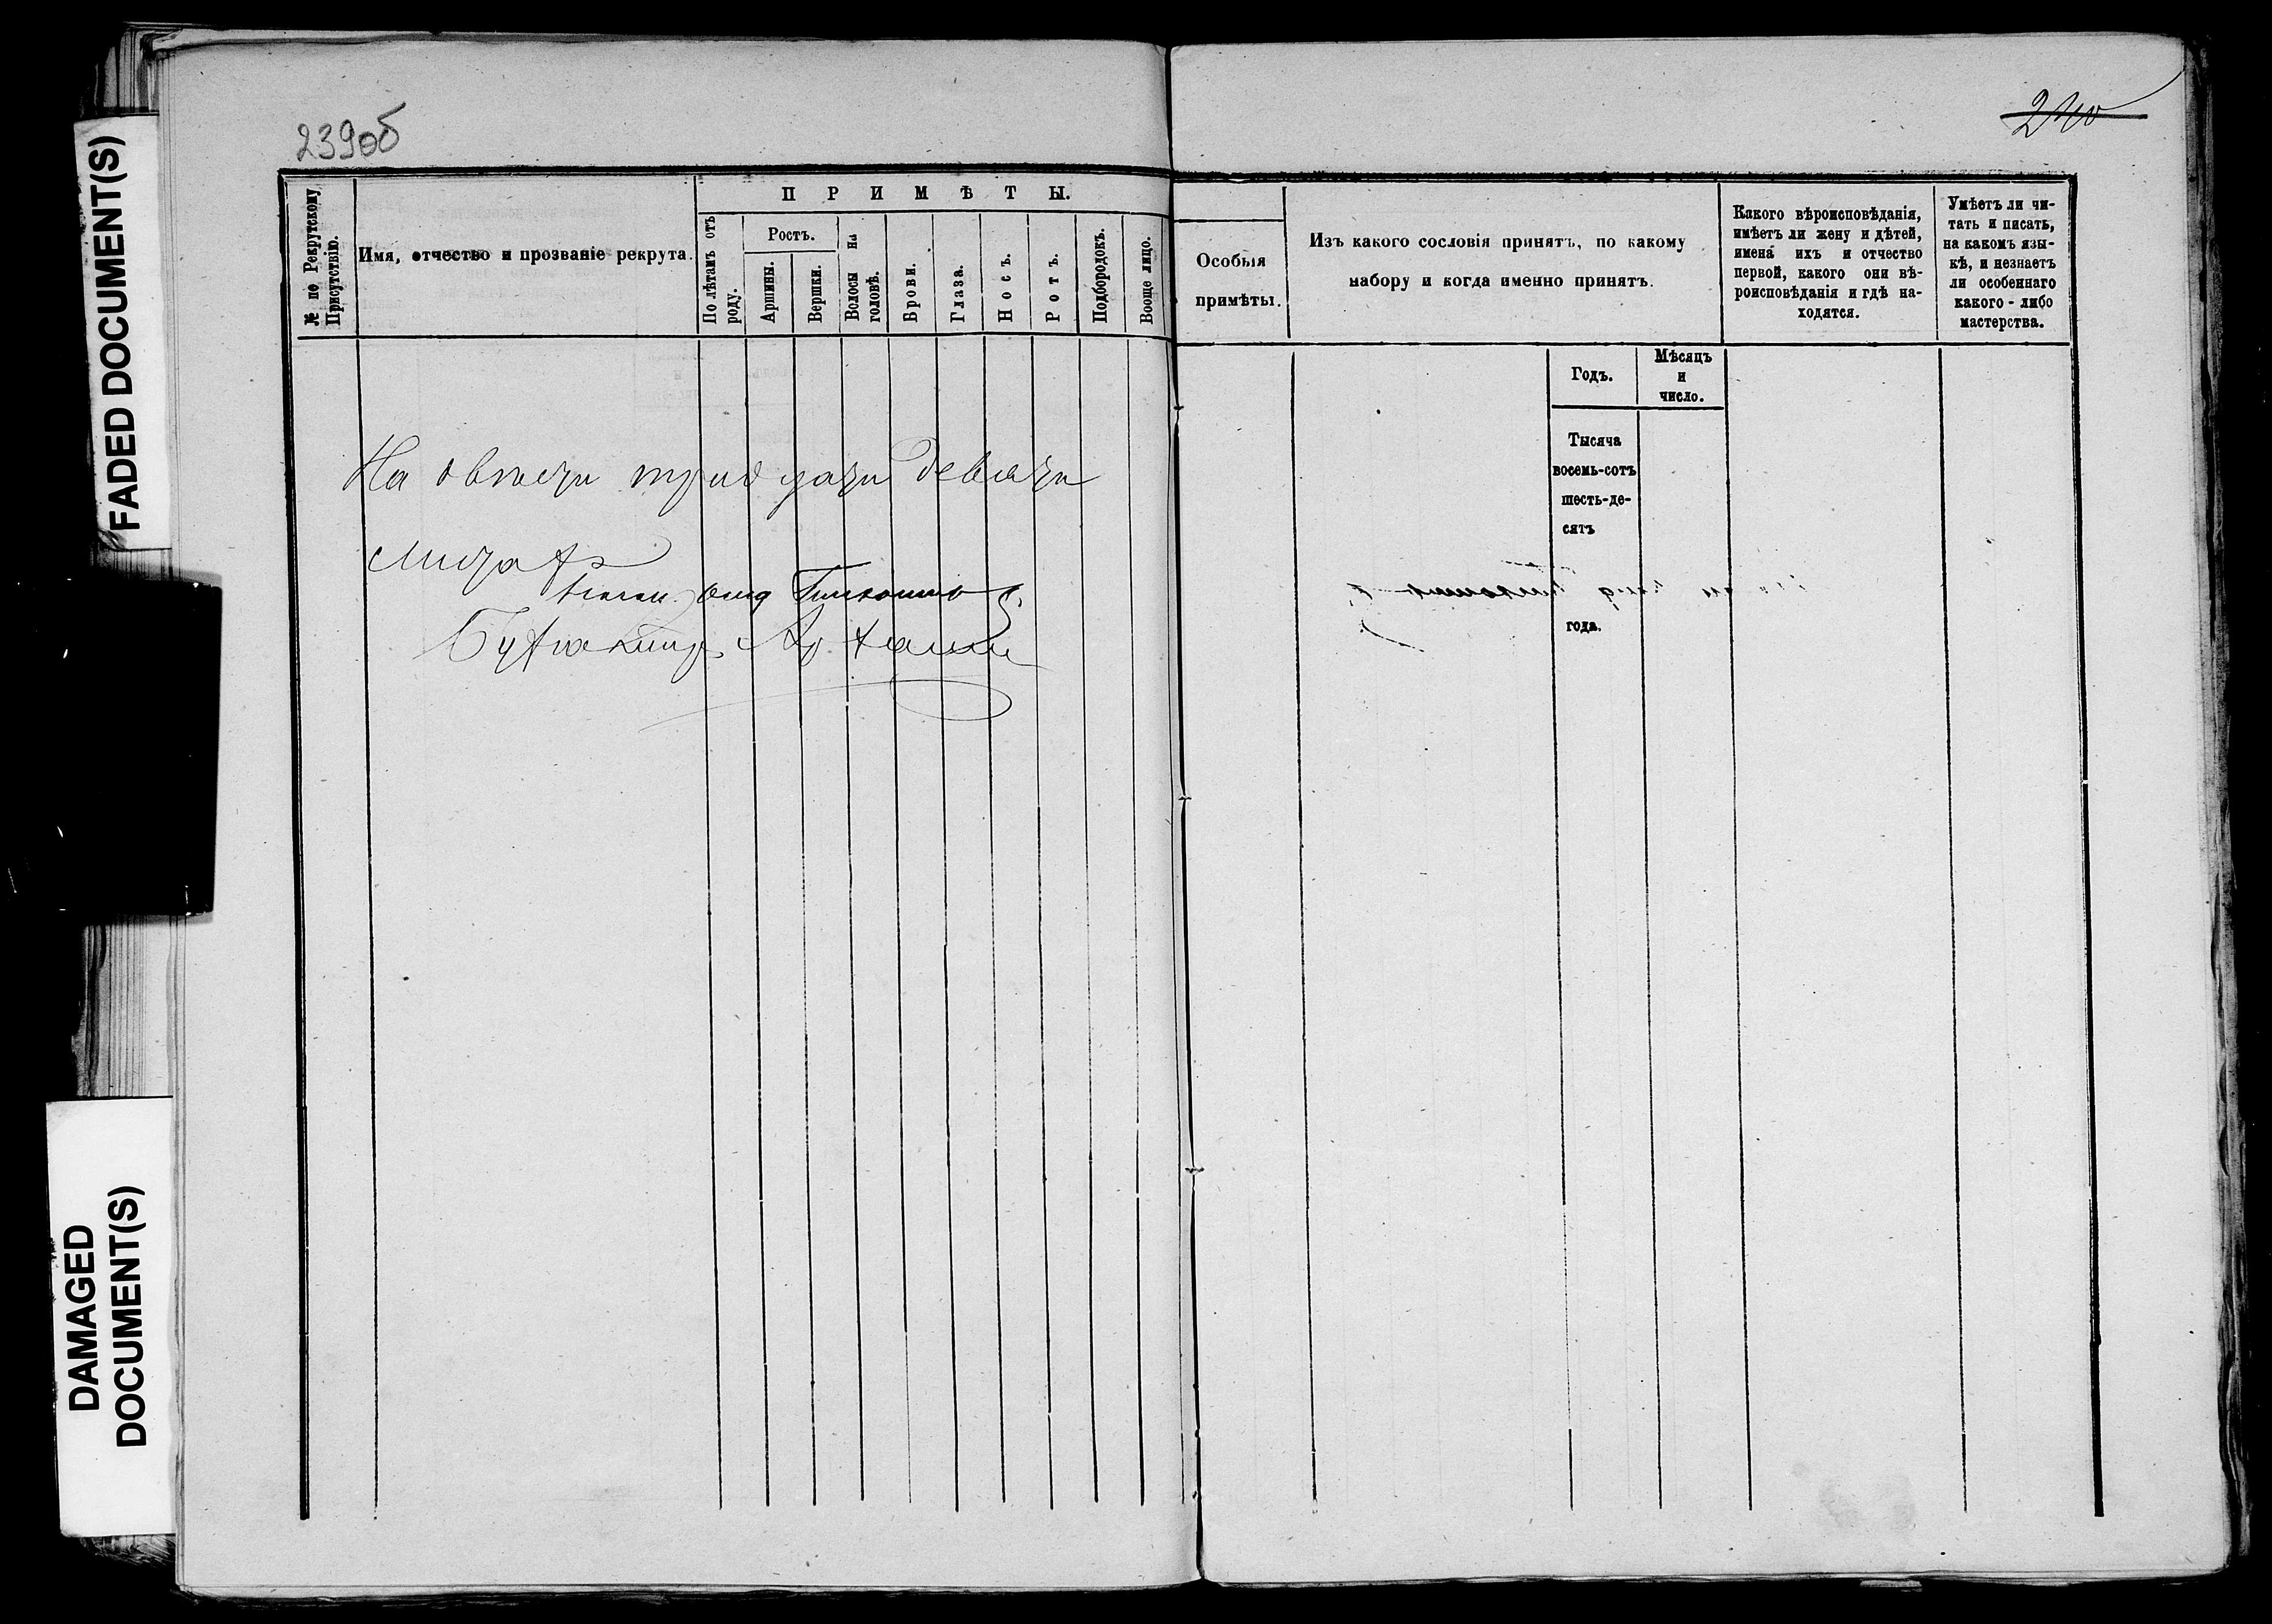 FADED DOCUMENT(S)
DAMAGED
DOCUMENT(S)
239об
240
№ по Рекрутскому
Присутствію.
Имя, отчество и прозваніе рекрута.
ПРИМѢТЫ.
По лѣтамъ отъ
роду.
Ростъ.
Аршины.
Вершки.
Волосы на
головѣ.
Брови.
Глаза.
Носъ.
Ротъ.
Подбородокъ.
Вооще лицо.
Особыя
примѣты.
Изъ какого сословія принятъ, по какому
набору и когда именно принятъ.
Какого вѣроисповѣданія,
имѣетъ ли жену и дѣтей,
имена ихъ и отчество
первой, какого они вѣ-
роисповѣданія и гдѣ на-
ходятся.
Умѣетъ ли чи-
тать и писать,
на какомъ язы-
кѣ, и незнаетъ
ли особеннаго
какого-либо
мастерства.
Годъ.
Мѣсяцъ
и
число.
Тысяча
восемь-сотъ
шесть-де-
сятъ
года.
На двѣсти тридцати девяти
листахъ